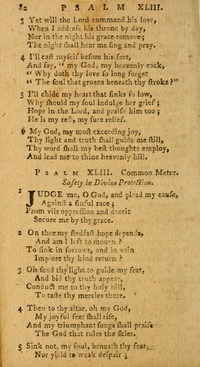 82 PSALM XLIII.
3 Yet will the Lord command his love,
When I address his throne by day,
Nor in the night his grace remove;
The night shall hear me sing and pray.
4 I'll cast myself before his feet,
And say, "my God, my heavenly rock,
"Why doth thy love so long forget
"The soul that groans beneath thy stroke?"
5 I'll chide my heart that sinks so low,
Why should my soul indulge her grief;
Hope in the Lord, and praise him too;
He is my rest, my sure relief.
6 My God, my most exceeding joy,
Thy light and truth shall guide me still,
Thy word shall my best thoughts employ,
And lead me to thine heavenly hill.
PSALM XLIII. Common Metre.
Safety in Divine Protection.
1 JUDGE me, O God, and plead my cause,
Against a sinful race;
From vile oppression and deceit
Secure me by thy grace.
2 On thee my stedfast hope depends,
And am I left to mourn?
To sink in sorrows, and in vain
Implore thy kind return?
3 Oh send thy light to guide my feet,
And bid thy truth appear,
Conduct me to thy holy hill,
To taste thy mercies there.
4 Then to thy altar, oh my God,
My joyful feet shall rise,
And my triumphant songs shall praise
The God that rules the skies.
5 Sink not, my soul, beneath thy fear,
Nor yield to weak despair;